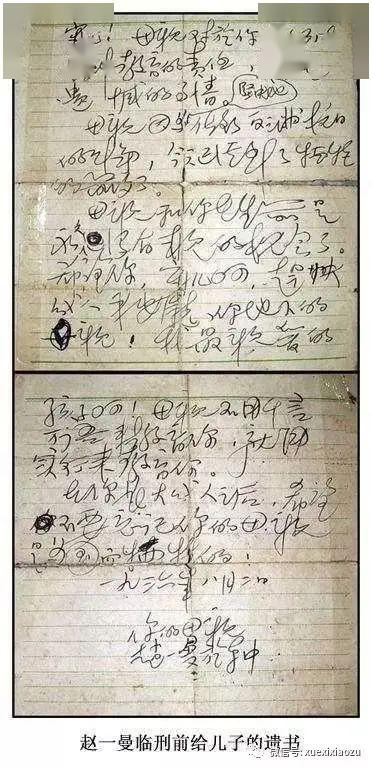 宁儿！母亲对於你
教育的责任，
是遗憾的事情。
母亲因 反满抗日
的斗争，今天已经到了牺牲
的前夕了。
母亲和你在生前是
永久没有再见的机会了。
希望你，宁儿啊，赶快
成人，来安慰你地下的
母亲！我最亲爱的
孩子啊！母亲不用千言
万语来教育你，就用
实行来教育你。
在你长大成人之后，希望
不要忘记你的母亲
是为国而牺牲的！
一九三六年八月二日
你的母亲
趙一曼於車中
赵一曼临刑前给儿子的遗书
微信号: xuexixiaozu